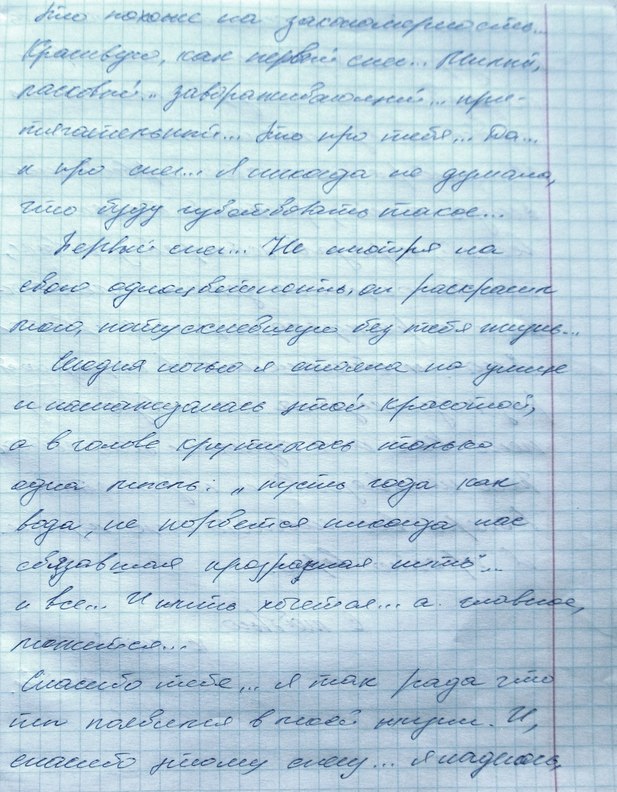 Это похоже на закономерность...
Красивую, как первый снег... Милый,
ласковый... завораживающий... при-
тягательный... Это про тебя... Да...
и про снег... Я никогда не думала,
что буду чувствовать такое...
Первый снег... Не смотря на
свою одноцветность, он раскрасил
мою, потускневшую без тебя жизнь...
Сегодня ночью я стояла на улице
и наслаждалась этой красотой,
а в голове крутилась только
одна мысль: „пусть года как
вода, не порвется никогда нас
связавшая прозрачная нить"...
и все... И жить хочется... а главное,
можется...
Спасибо тебе... Я так рада что
ты появился в моей жизни. И,
спасибо этому снегу... я надеюсь,